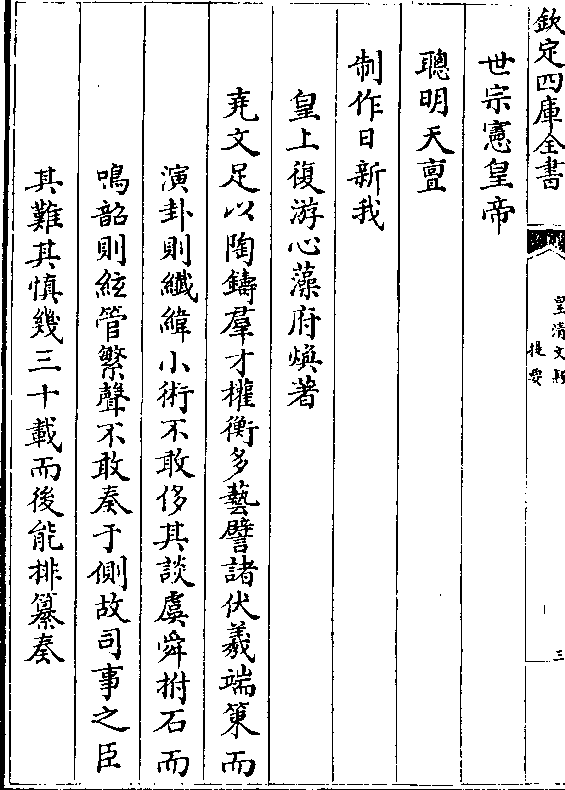 欽定四庫全書
皇清文穎
提要
三
世宗憲皇帝
聰明天亶
制作日新我
皇上復游心藻府煥著
堯文足以陶鑄羣才權衡多藝譬諸伏羲端䇿而
演卦則纖緯小術不敢侈其談虞舜拊石而
鳴韶則絃管繁聲不敢奏于側故司事之臣
其難其慎幾三十載而後能排纂奏